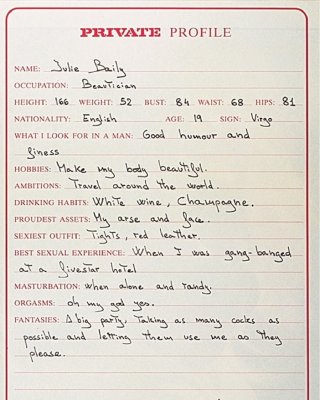 PRIVATE PROFILE
NAME: Julie Baily
OCCUPATION: Beautician
HEIGHT: 166 WEIGHT: 52 BUST: 84 WAIST: 68 HIPS: 81
NATIONALITY: English AGE: 19 SIGN: Virgo
WHAT I LOOK FOR IN A MAN: Good humour and
finess
HOBBIES: Make my body beautiful.
AMBITIONS: Travel around the world.
DRINKING HABITS: White wine, Champagne.
PROUDEST ASSETS: My arse and face.
SEXIEST OUTFIT: Tights, red leather.
BEST SEXUAL EXPERIENCE: When I was gang-banged
at a fivestar hotel
MASTURBATION: When alone and randy.
ORGASMS: oh my god yes.
FANTASIES: A big party, Taking as many cocks as
possible and letting them use me as they
please.